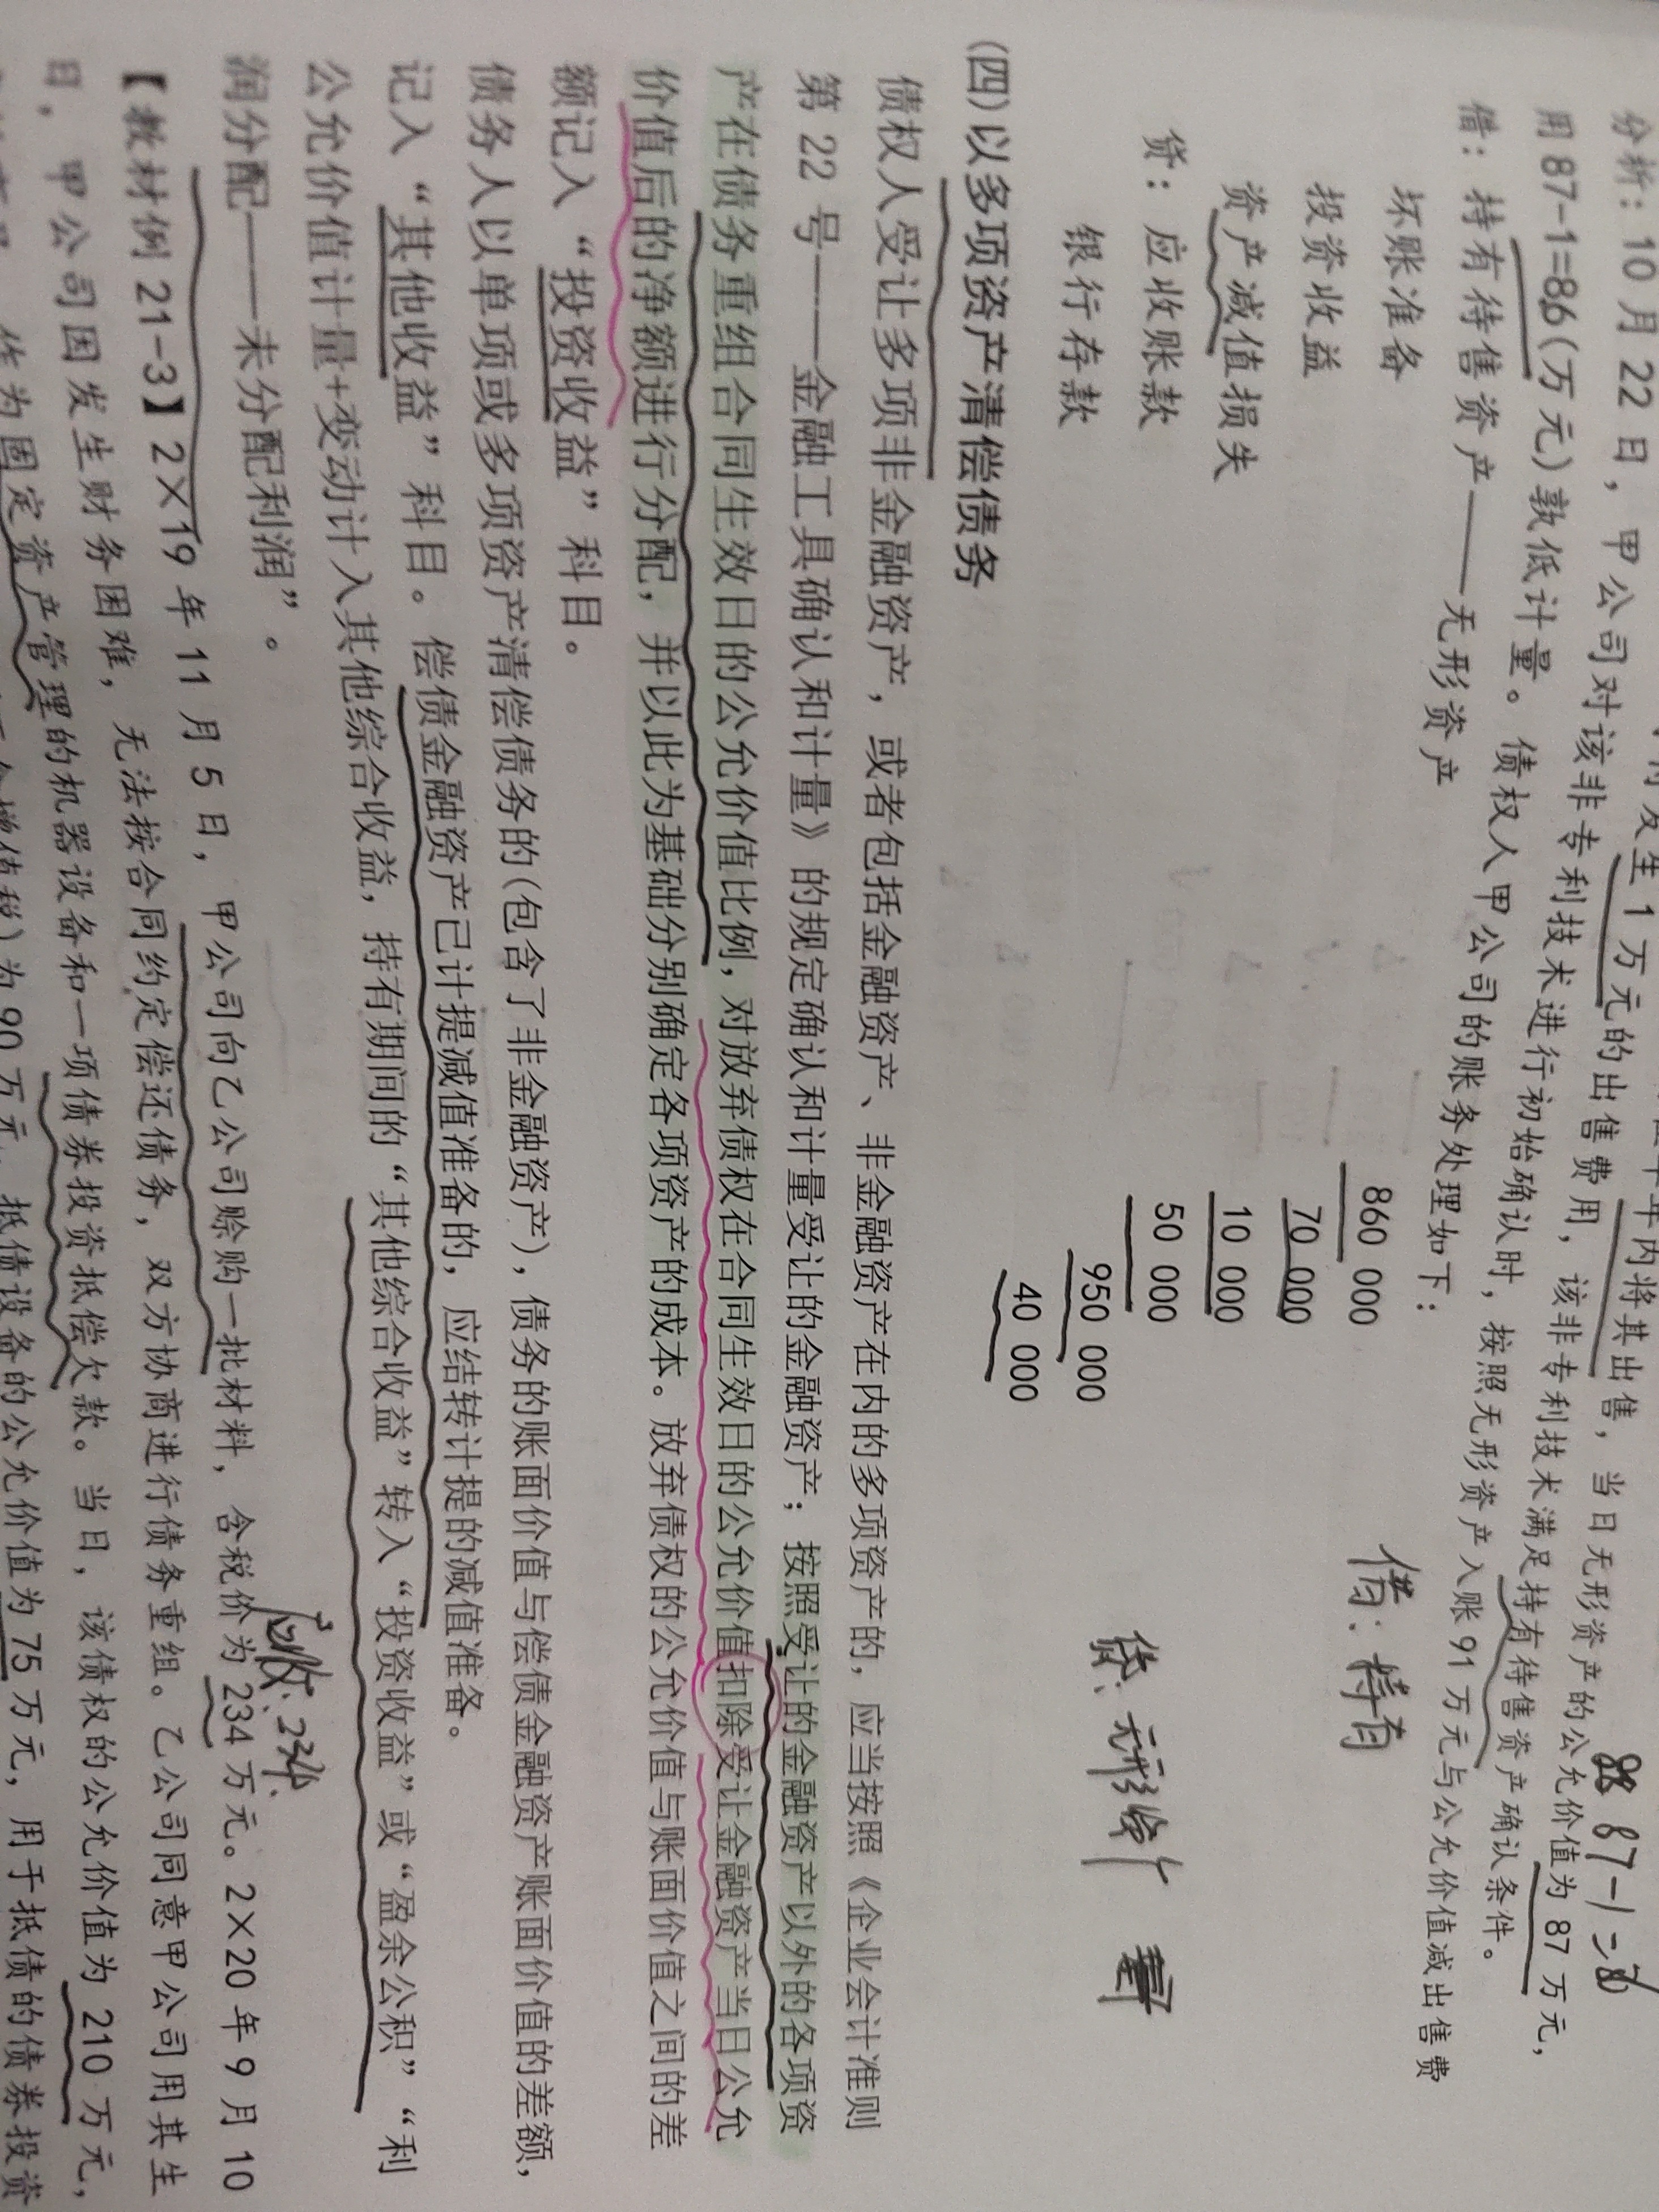 年内将其出售，当日无形资产的公允价值为 87 万元，
发生 1 万元的出售费用，该非专利技术满足持有待售资产确认条件。
分析：10 月 22 日，甲公司对该非专利技术进行初始确认时，按照无形资产入账 91 万元与公允价值减出售费
用 87-1=86(万元)孰低计量。债权人甲公司的账务处理如下：
借：持有待售资产——无形资产 860 000
坏账准备 70 000
投资收益 10 000
资产减值损失 50 000
贷：应收账款 950 000
银行存款 40 000
87-1=86
借：持有
贷：无形资产
(四)以多项资产清偿债务
债权人受让多项非金融资产，或者包括金融资产、非金融资产在内的多项资产的，应当按照《企业会计准则
第 22 号——金融工具确认和计量》的规定确认和计量受让的金融资产；按照受让的金融资产以外的各项资
产在债务重组合同生效日的公允价值比例，对放弃债权在合同生效日的公允价值扣除受让金融资产当日公允
价值后的净额进行分配，并以此为基础分别确定各项资产的成本。放弃债权的公允价值与账面价值之间的差
额记入“投资收益”科目。
债务人以单项或多项资产清偿债务的(包含了非金融资产)，债务的账面价值与偿债金融资产账面价值的差额，
记入“其他收益”科目。偿债金融资产已计提减值准备的，应结转计提的减值准备。
公允价值计量+变动计入其他综合收益，持有期间的“其他综合收益”转入“投资收益”或“盈余公积”“利
润分配——未分配利润”。
应收：234
【教材例 21-3】2×19 年 11 月 5 日，甲公司向乙公司赊购一批材料，含税价为 234 万元。2×20 年 9 月 10
日，甲公司因发生财务困难，无法按合同约定偿还债务，双方协商进行债务重组。乙公司同意甲公司用其生
作为固定资产管理的机器设备和一项债券投资抵偿欠款。当日，该债权的公允价值为 210 万元，
增值税)为 90 万元，抵债设备的公允价值为 75 万元，用于抵债的债券投资